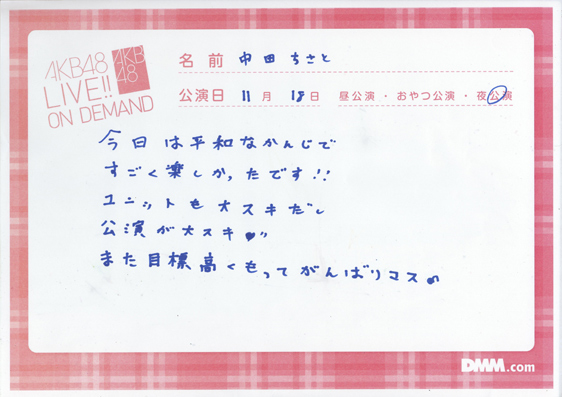 AKB48
LIVE!!
ON DEMAND
AKB
48
名前 中田 ちさと
公演日 11月 18日 昼公演・おやつ公演・夜公演
今日は平和なかんじで
すごく楽しかったです!!
ユニットも大スキだし
公演が大スキ♥"
また目標高くもってがんばりマス♪
DMM.com